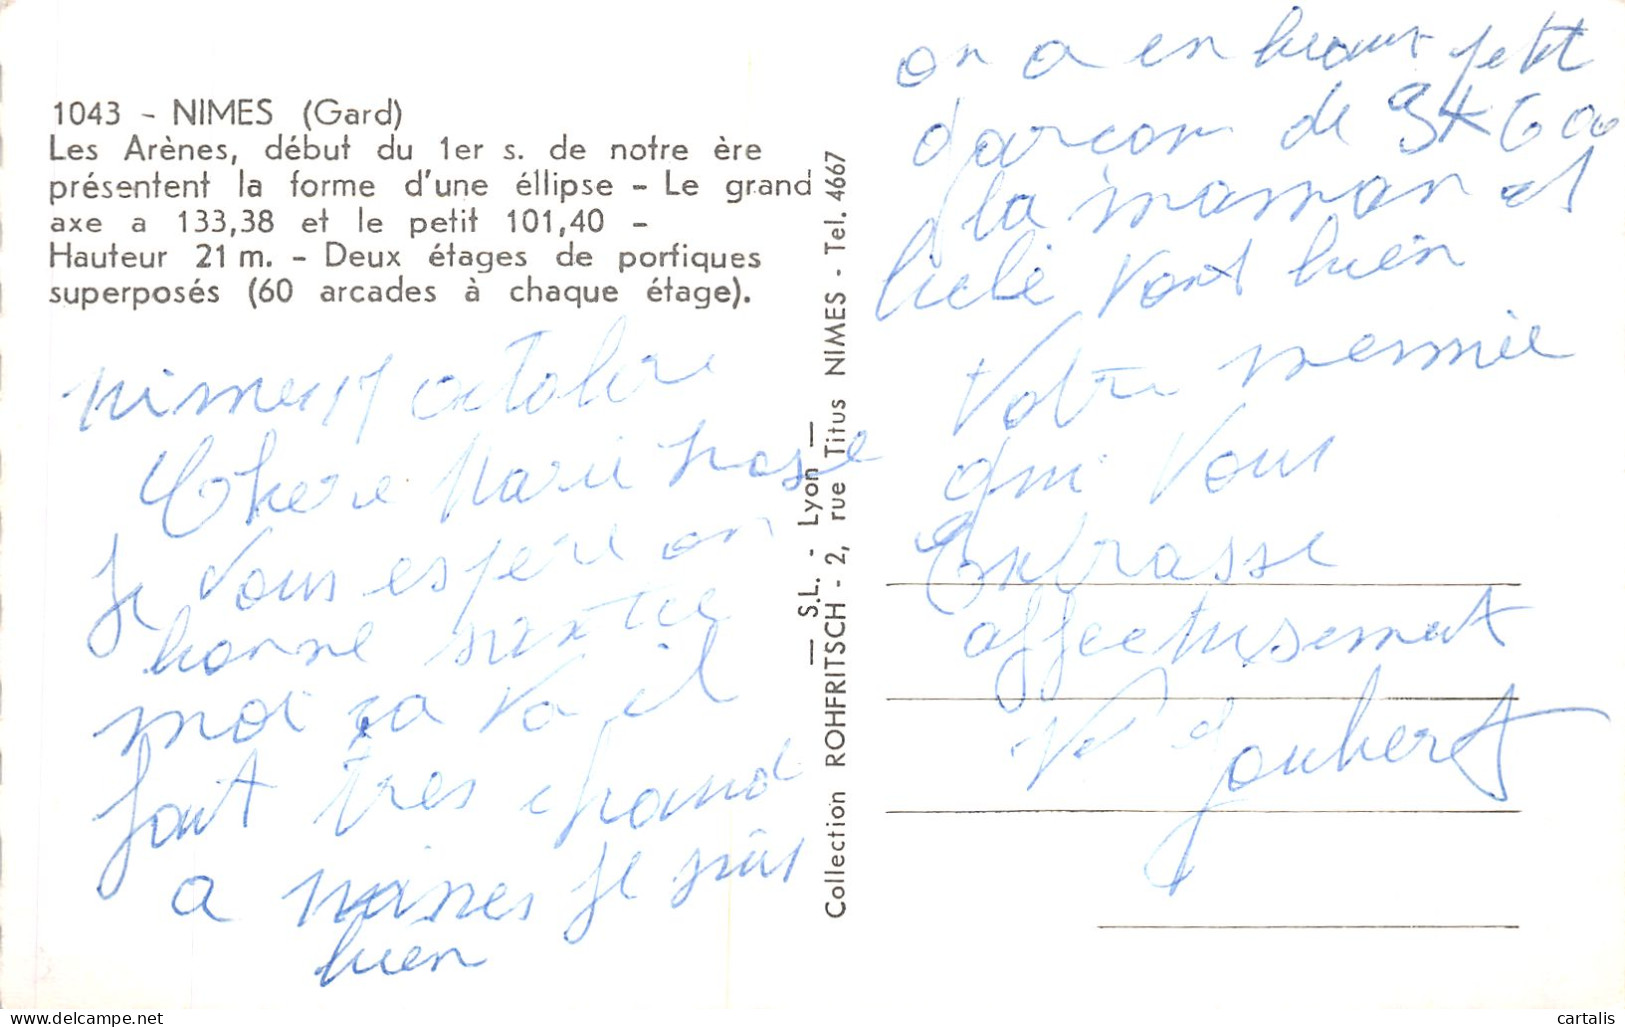 1043 - NIMES (Gard)
Les Arènes, début du 1er s. de notre ère
présentent la forme d'une éllipse - Le grand
axe a 133,38 et le petit 101,40 -
Hauteur 21 m. - Deux étages de portiques
superposés (60 arcades à chaque étage).
Nimes 17 octobre
Chere Marie
Je vous espere en
bonne santee
moi sa va il
fait tres chaud
a nimes je suis
bien
— S.L. - Lyon —
Collection ROHFRITSCH - 2, rue Titus NIMES - Tel. 4667
on a en beaux petit
garcon de 3K600
la maman et
bebe vont bien
Votre memmee
qui vous
embrasse
affectusement
Ve Joubert
www.delcampe.net
cartalis